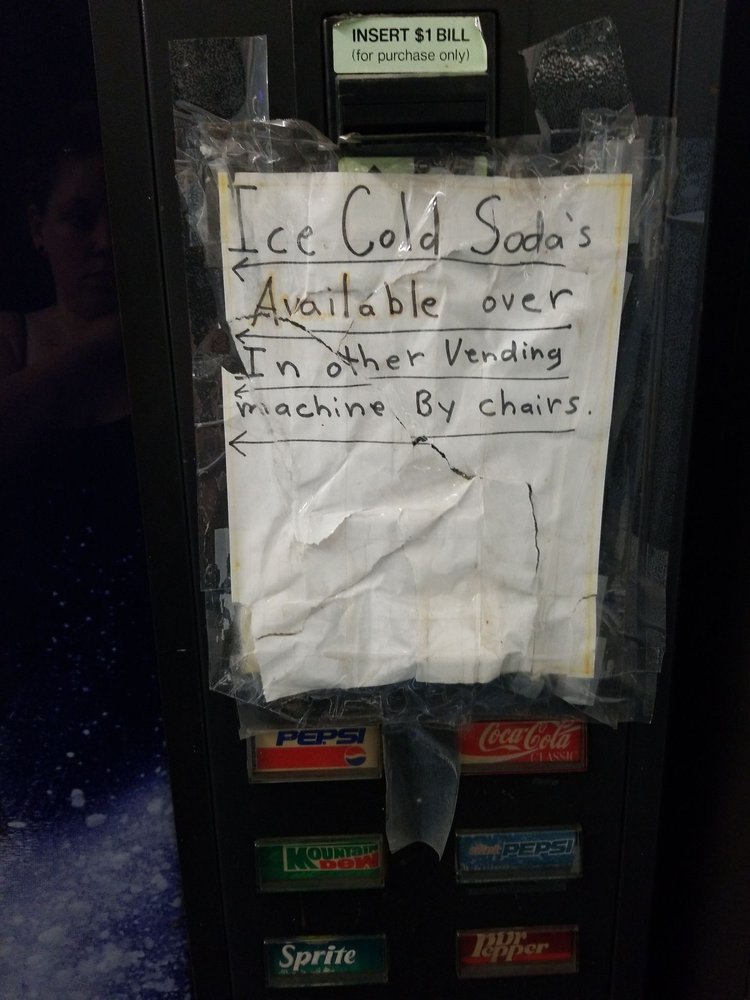 INSERT $1 BILL
(for purchase only)
Ice Cold Soda's
Available over
In other Vending
machine By chairs.
PEPSI
Coca-Cola
CLASSIC
MOUNTAIN
DEW
PEPSI
Sprite
Dr Pepper